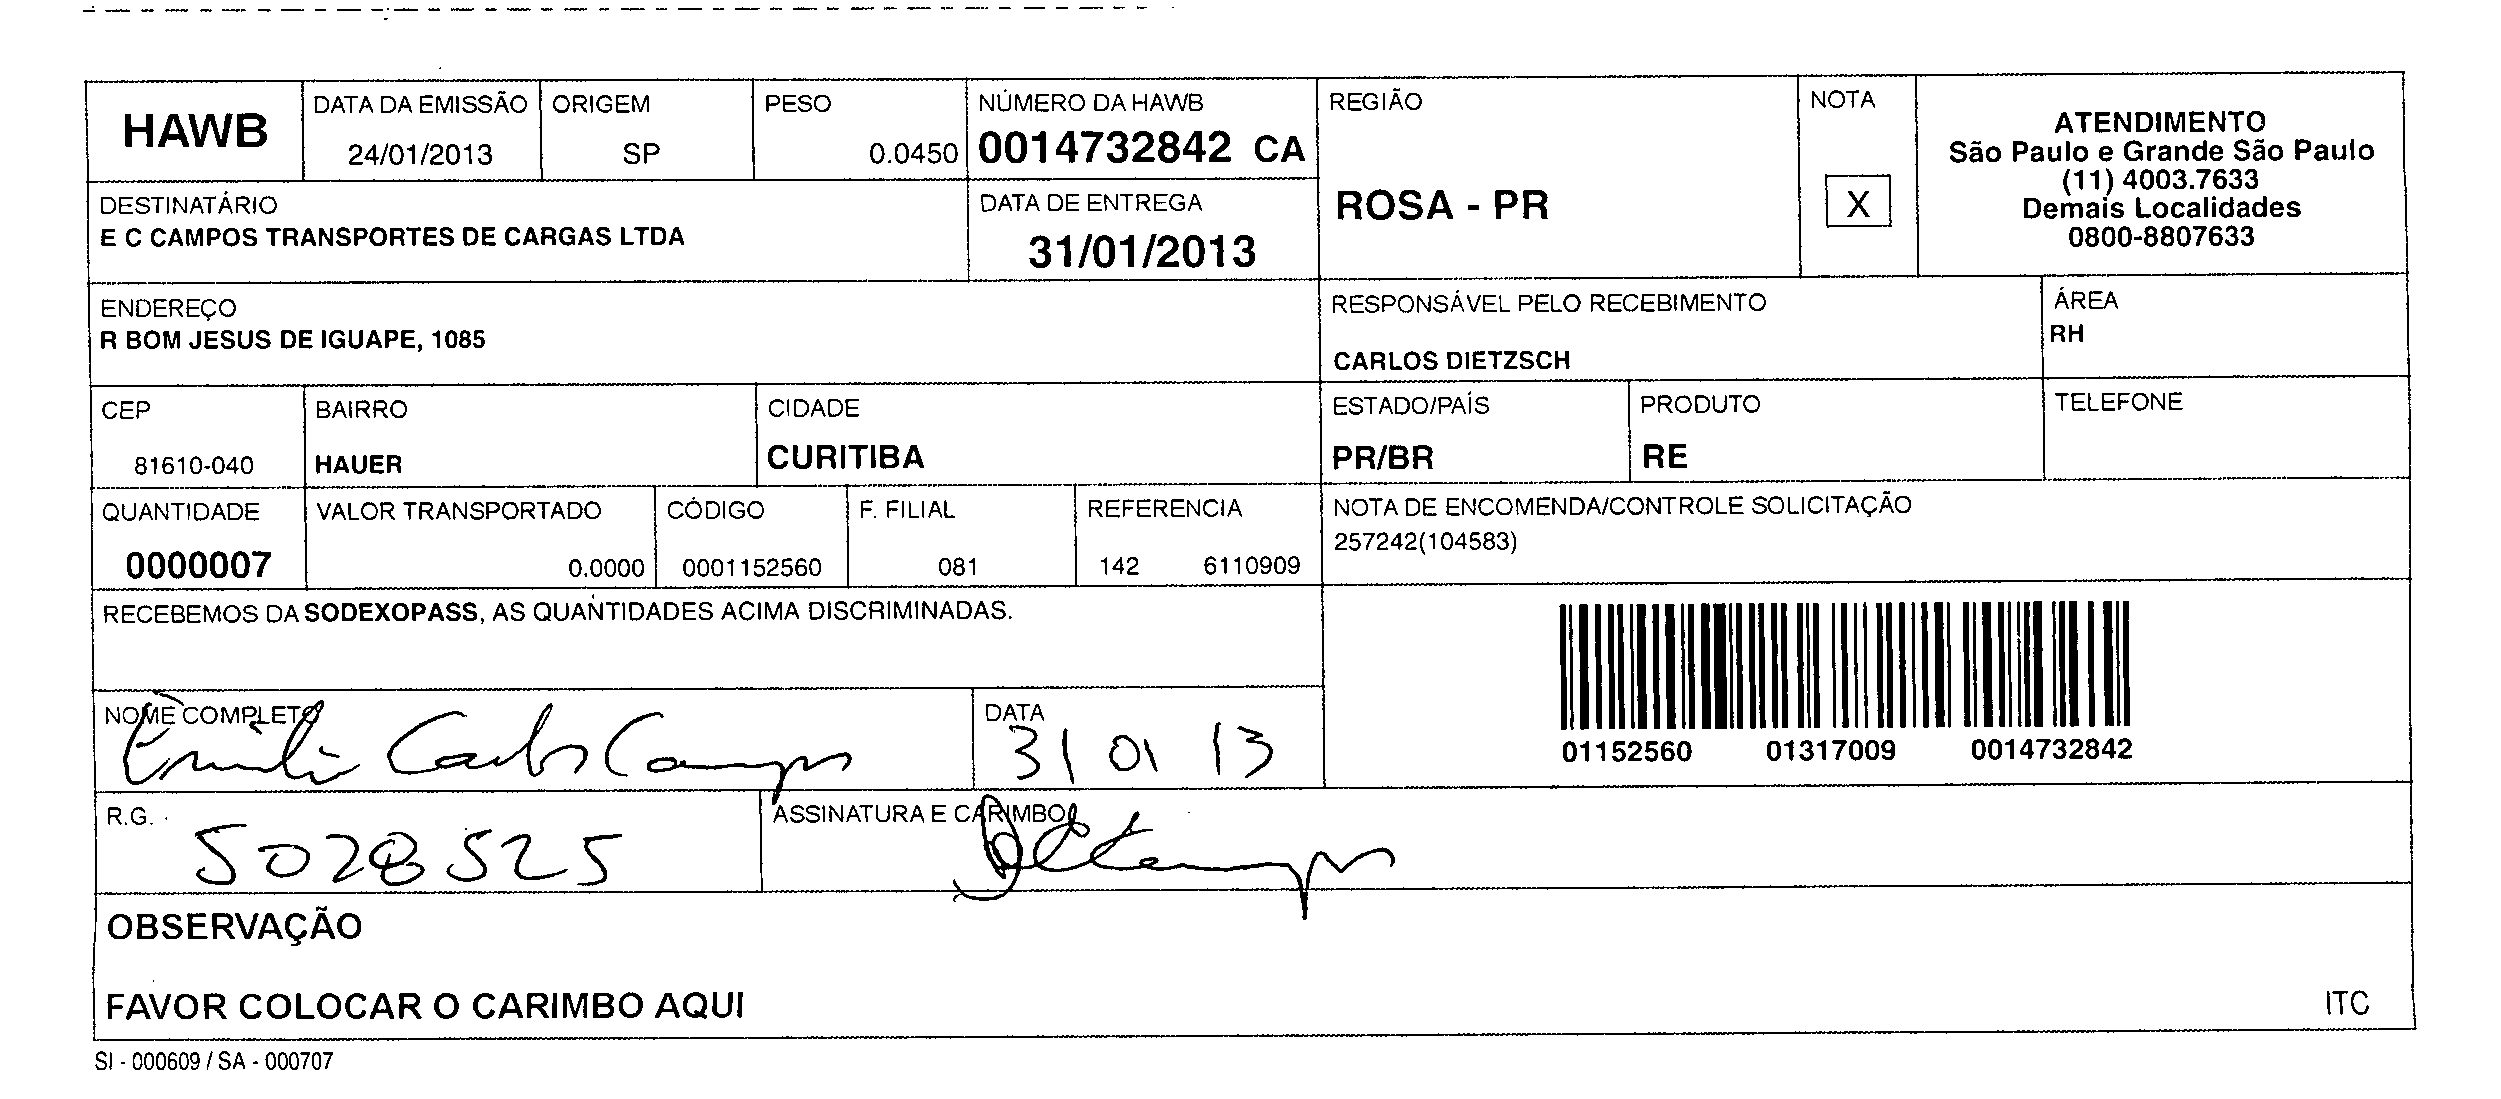 HAWB
DATA DA EMISSÃO
24/01/2013
ORIGEM
SP
PESO
0.0450
NÚMERO DA HAWB
0014732842 CA
REGIÃO
ROSA - PR
NOTA
X
ATENDIMENTO
São Paulo e Grande São Paulo
(11) 4003.7633
Demais Localidades
0800-8807633
DESTINATÁRIO
E C CAMPOS TRANSPORTES DE CARGAS LTDA
DATA DE ENTREGA
31/01/2013
ENDEREÇO
R BOM JESUS DE IGUAPE, 1085
RESPONSÁVEL PELO RECEBIMENTO
CARLOS DIETZSCH
ÁREA
RH
CEP
81610-040
BAIRRO
HAUER
CIDADE
CURITIBA
ESTADO/PAÍS
PR/BR
PRODUTO
RE
TELEFONE
QUANTIDADE
0000007
VALOR TRANSPORTADO
0.0000
CÓDIGO
0001152560
F. FILIAL
081
REFERENCIA
142 6110909
NOTA DE ENCOMENDA/CONTROLE SOLICITAÇÃO
257242(104583)
RECEBEMOS DA SODEXOPASS, AS QUANTIDADES ACIMA DISCRIMINADAS.
01152560 01317009 0014732842
NOME COMPLETO
Emílio Carlos Campos
DATA
31 01 13
R.G.
5028525
ASSINATURA E CARIMBO
OBSERVAÇÃO
FAVOR COLOCAR O CARIMBO AQUI
ITC
SI - 000609 / SA - 000707